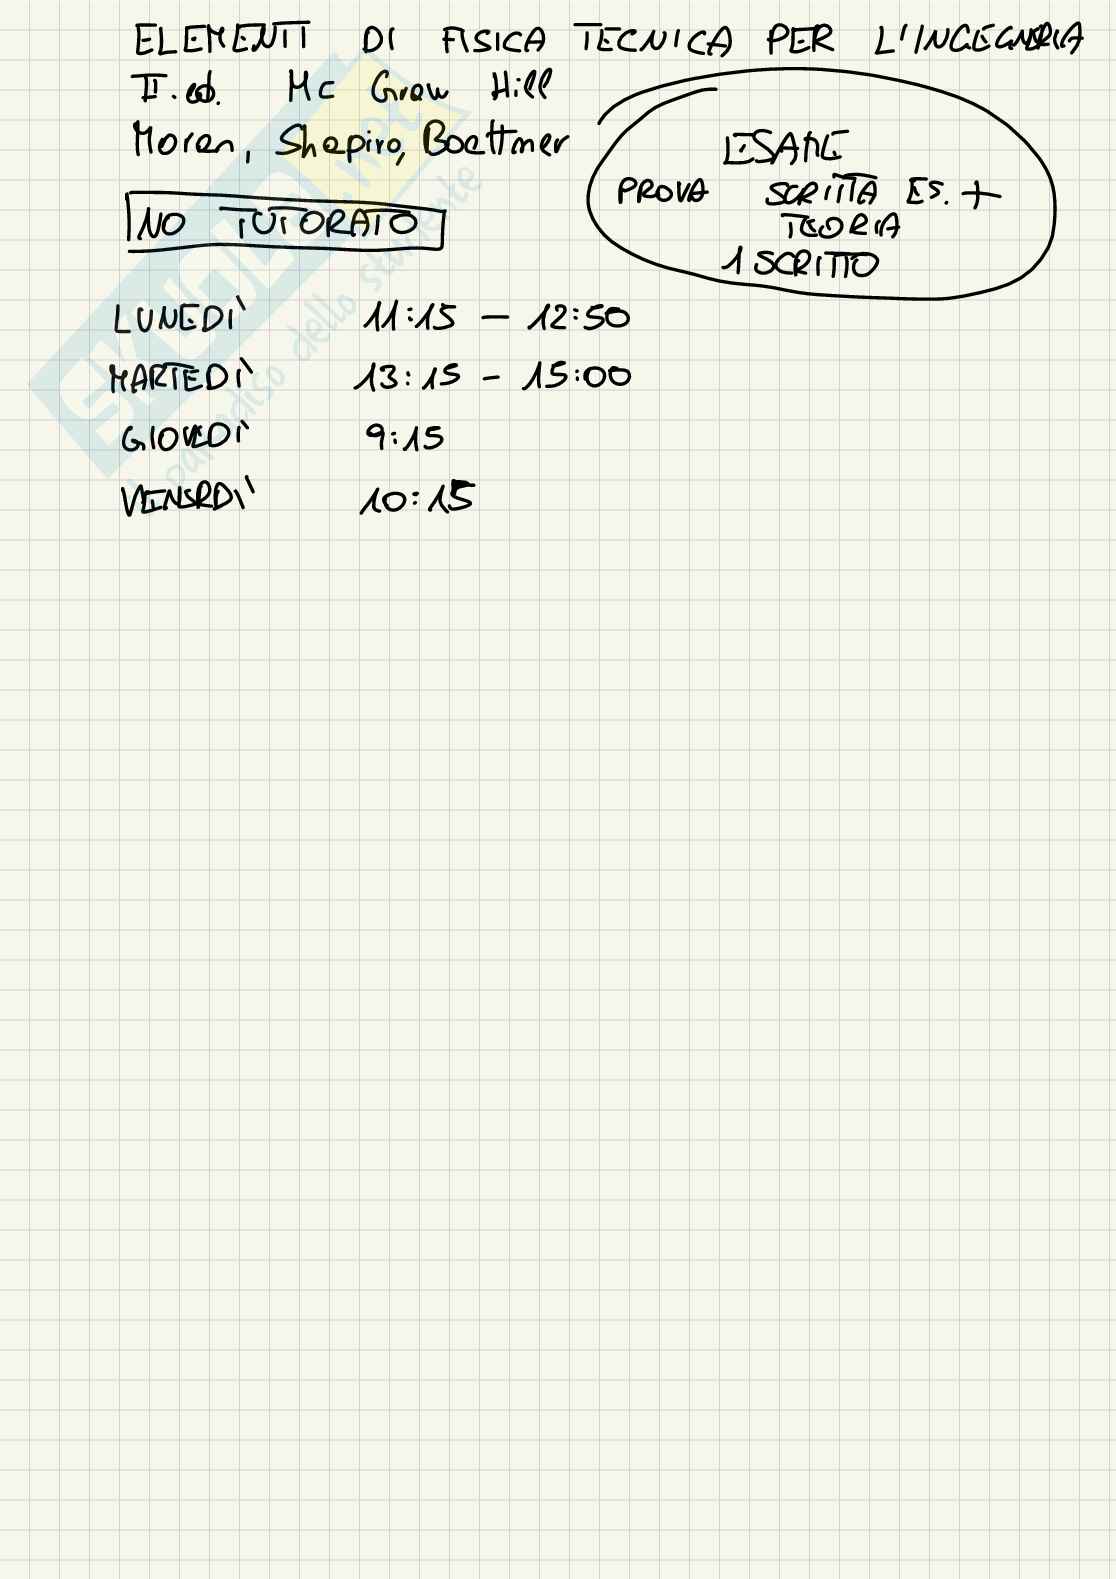 ELEMENTI DI FISICA TECNICA PER L'INGEGNERIA
II. ed. Mc Graw Hill
Moran, Shapiro, Boettner
NO TUTORATO
ESAME
PROVA SCRITTA ES. +
TEORIA
1 SCRITTO
LUNEDI' 11:15 - 12:50
MARTEDI' 13:15 - 15:00
GIOVEDI' 9:15
VENERDI' 10:15
SKUOLA.net
il paradiso dello studente